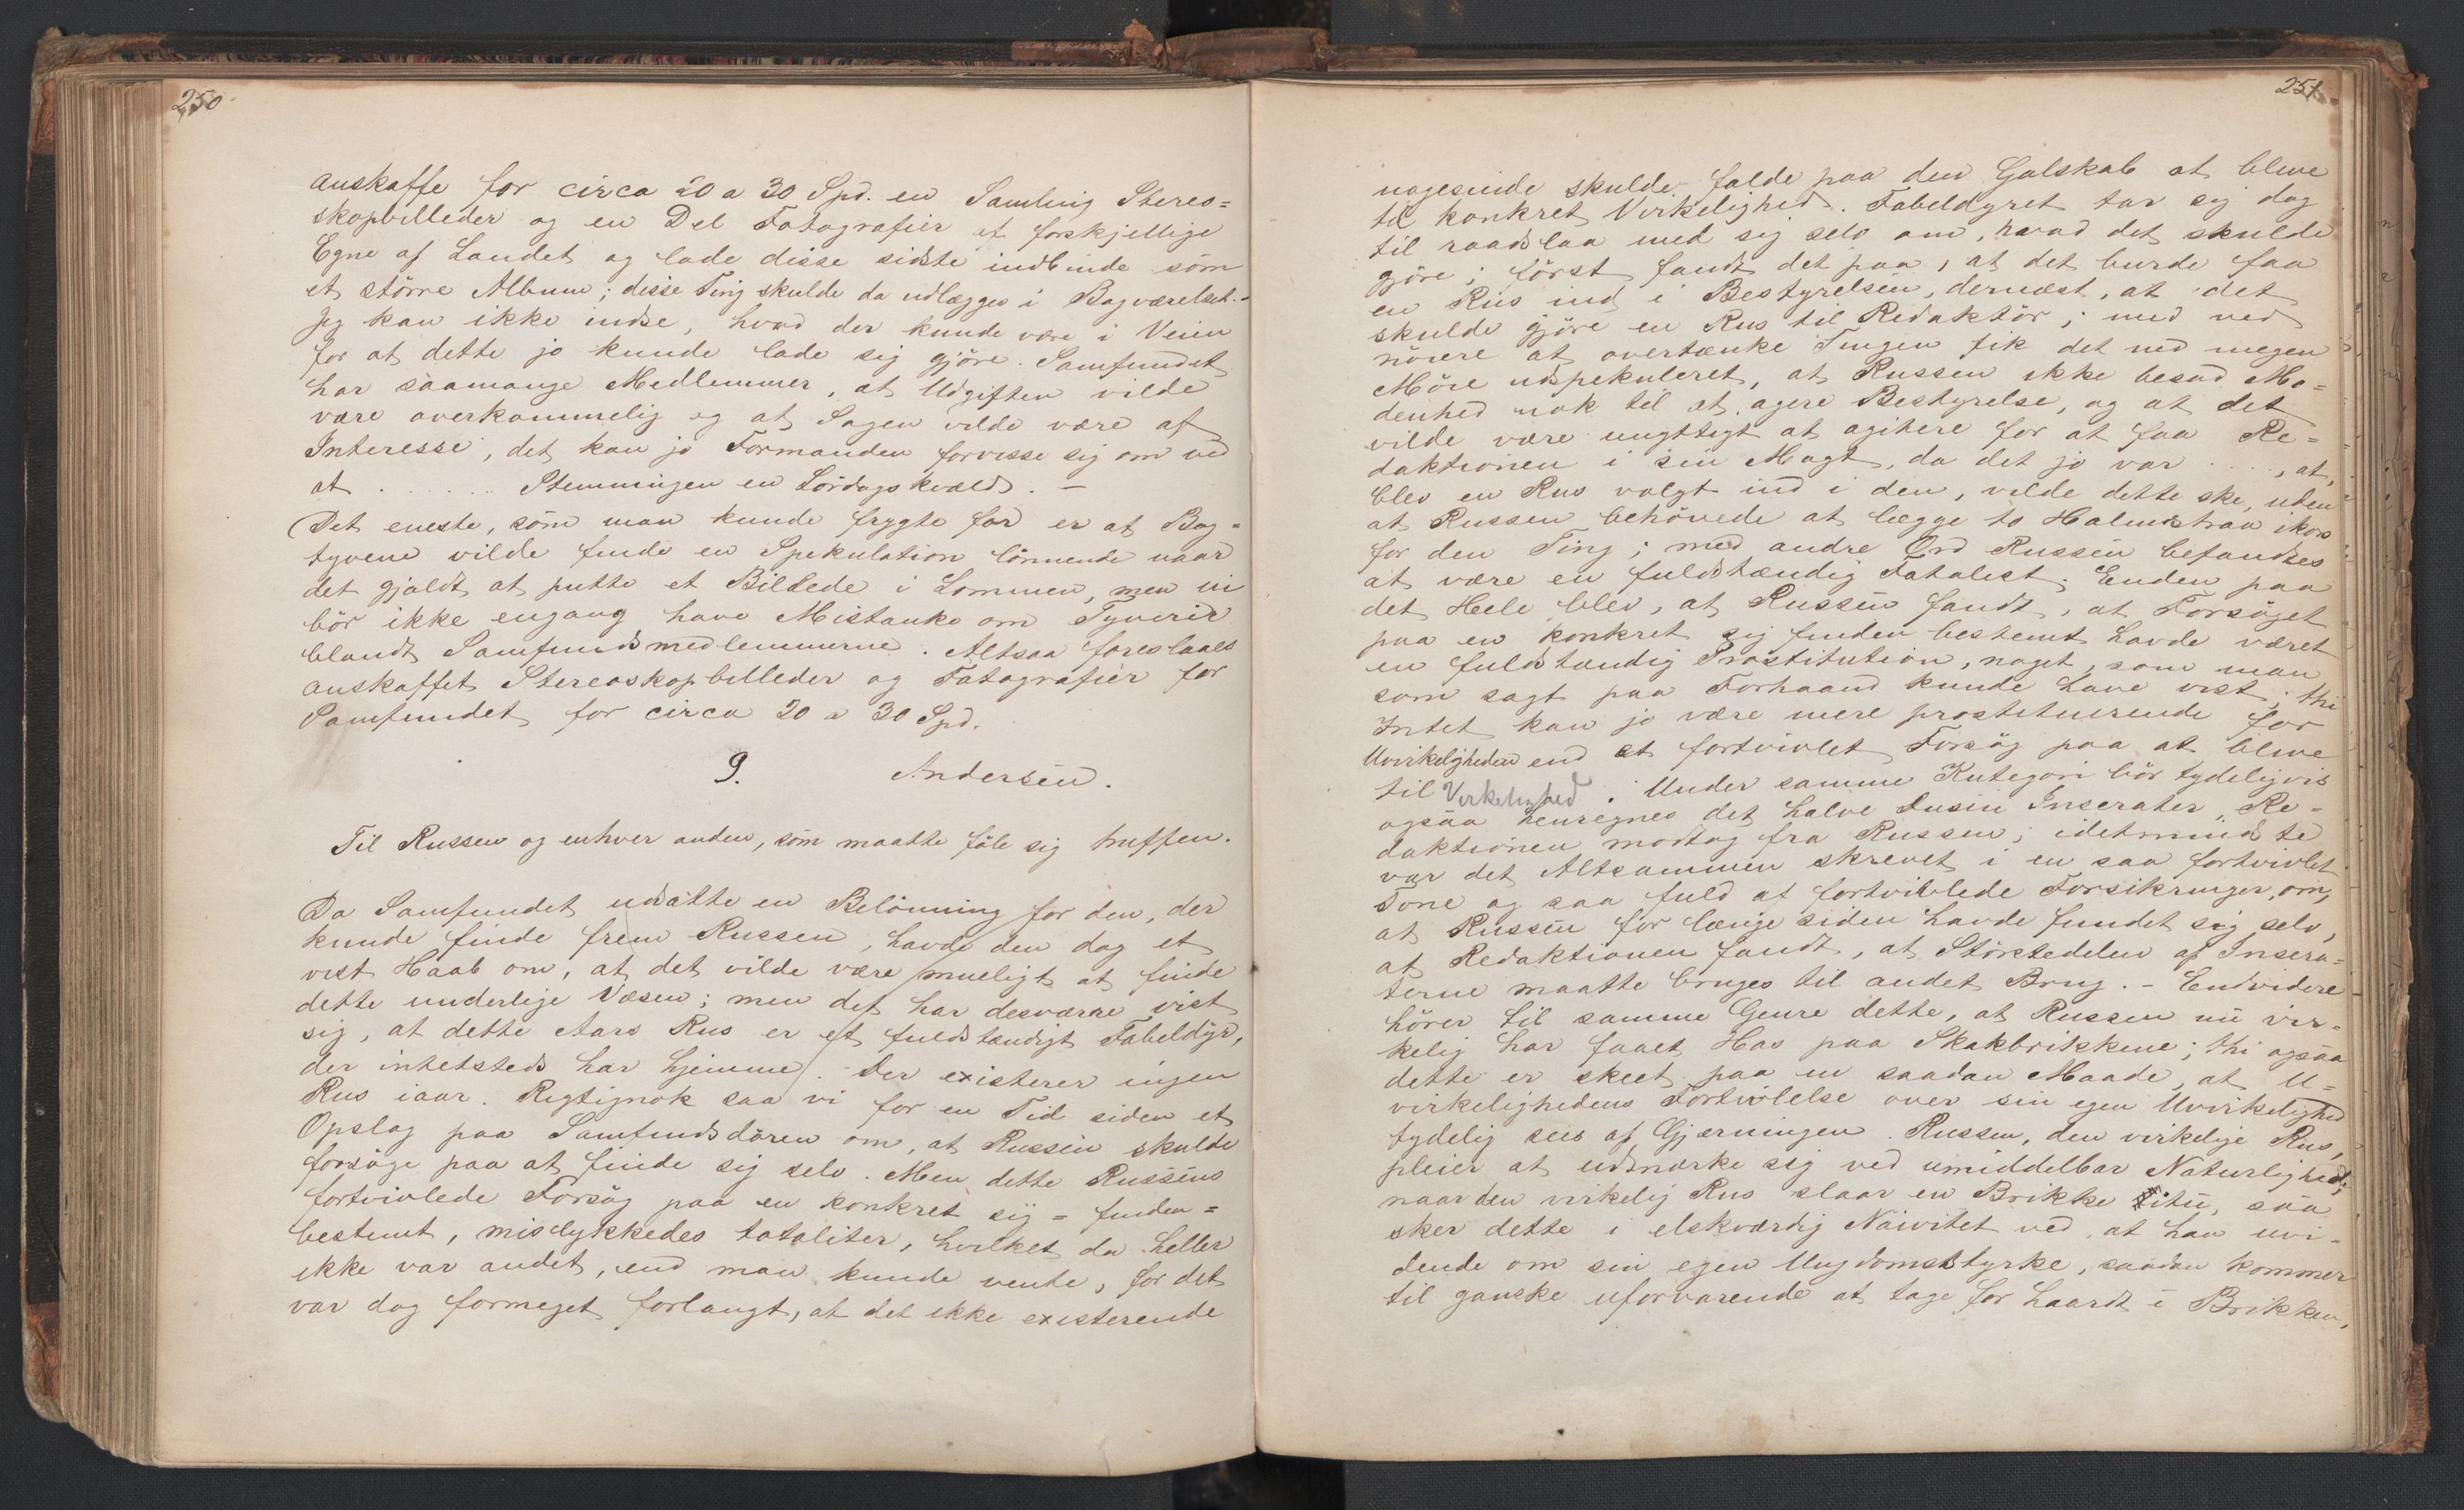 250
anskaffe for circa 20 a 30 Spd. en Samling Stereo=
skopbilleder og en Del Fotografier af forskjellige
Egne af Landet og lade disse sidste indbinde som
et större Album; disse Ting skulde da udlægges i Bagværelset.-
Jeg kan ikke indse, hvad der kunde være i Veien
for at dette jo kunde lade sig gjöre. Samfundet
har saamange Medlemmer, at Udgiften vilde
være overkommelig og at Sagen vilde være af
Interesse, det kan jo Formanden forvisse sig om ved
at ...... Stemningen en Lördagskveld. -
Det eneste, som man kunde frygte for er at Bog=
tyvene vilde finde en Spekulation lönnende naar
det gjaldt at putte et Billede i Lommen, men vi
bör ikke engang have Mistanke om Tyverier
blandt Samfundsmedlemmerne. Altsaa foreslaaes
anskaffet Stereoskopbilleder og Fotografier for
Samfundet for circa 20 a 30 Spd.
9. Andersen.
Til Russen og enhver anden, som maatte föle sig truffen.
Da Samfundet udsatte en Belönning for den, der
kunde finde frem Russen, havde den dog et
vist Haab om, at det vilde være mueligt at finde
dette underlige Væsen; men det har desværre vist
sig, at dette Aars Rus er et fuldstændigt Fabeldyr,
der intetsteds har hjemme. Der existerer ingen
Rus iaar. Rigtignok saa vi for en Tid siden et
Opslag paa Samfundsdören om, at Russen skulde
forsöge paa at finde sig selv. Men dette Russens
fortvivlede Forsög paa en konkret sig = finden=
bestemt, mislykkedes totaliter, hvilket da heller
ikke var andet, end man kunde vente, for det
var dog formeget forlangt, at det ikke existerende
251
nogensinde skulde falde paa den Galskab at blive
til konkret Virkelighed. Fabeldyret tar sig dog
til raadslaa med sig selv om, hvad det skulde
gjöre; först fandt det paa, at det burde faa
en Rus ind i Bestyrelsen, dernæst, at det
skulde gjöre en Rus til Redaktör; med ved
nöiere at overtænke Tingen fik det med megen
Möie udspekuleret, at Russen ikke besad Mo=
denhed nok til at agere Bestyrelse, og at det
vilde være unyttigt at agitere for at faa Re=
daktionen i sin Magt, da det jo var ...., at,
blev en Rus valgt ind i den, vilde dette ske, uden
at Russen behövede at lægge to Halmstraa ikors
for den Ting; med andre Ord Russen befandtes
at være en fuldstændig Fatalist. Enden paa
det Hele blev, at Russen fandt, at Forsöget
paa en konkret sig finden bestemt havde været
en fuldstændig Prostitution, noget, som man
som sagt paa Forhaand kunde have vist; thi
Intet kan jo være mere prostituerende for
Uvirkeligheden end et fortvivlet Forsög paa at blive
til Virkelighed. Under samme Kategori bör tydeligvis
ogsaa henregnes det halve Dusin Inserater, Re=
daktionen modtog fra Russen; idetmindste
var det Altsammen skrevet i en saa fortvivlet
Tone og saa fuld af fortvivlede Forsikringer, om,
at Russen for længe siden havde fundet sig selv,
at Redaktionen fandt, at Störstedelen af Insera=
terne maatte bruges til andet Brug. - Endvidere
hörer til samme Genre dette, at Russen nu vir=
kelig har faaet Has paa Skakbrikkene; thi ogsaa
dette er skeet paa en saadan Maade, at U=
virkelighedens Fortvivlelse over sin egen Uvirkelighed
tydelig sees af Gjærningen. Russen, den virkelige Rus,
pleier at udmærke sig ved umiddelbar Naturlighed;
naar den virkelig Rus slaar en Brikke itu, saa
sker dette i elskværdig Naivitet ved, at han uvi=
dende om sin egen Ungdomsstyrke, saadan kommer
til ganske uforvarende at tage for haardt i Brikken,